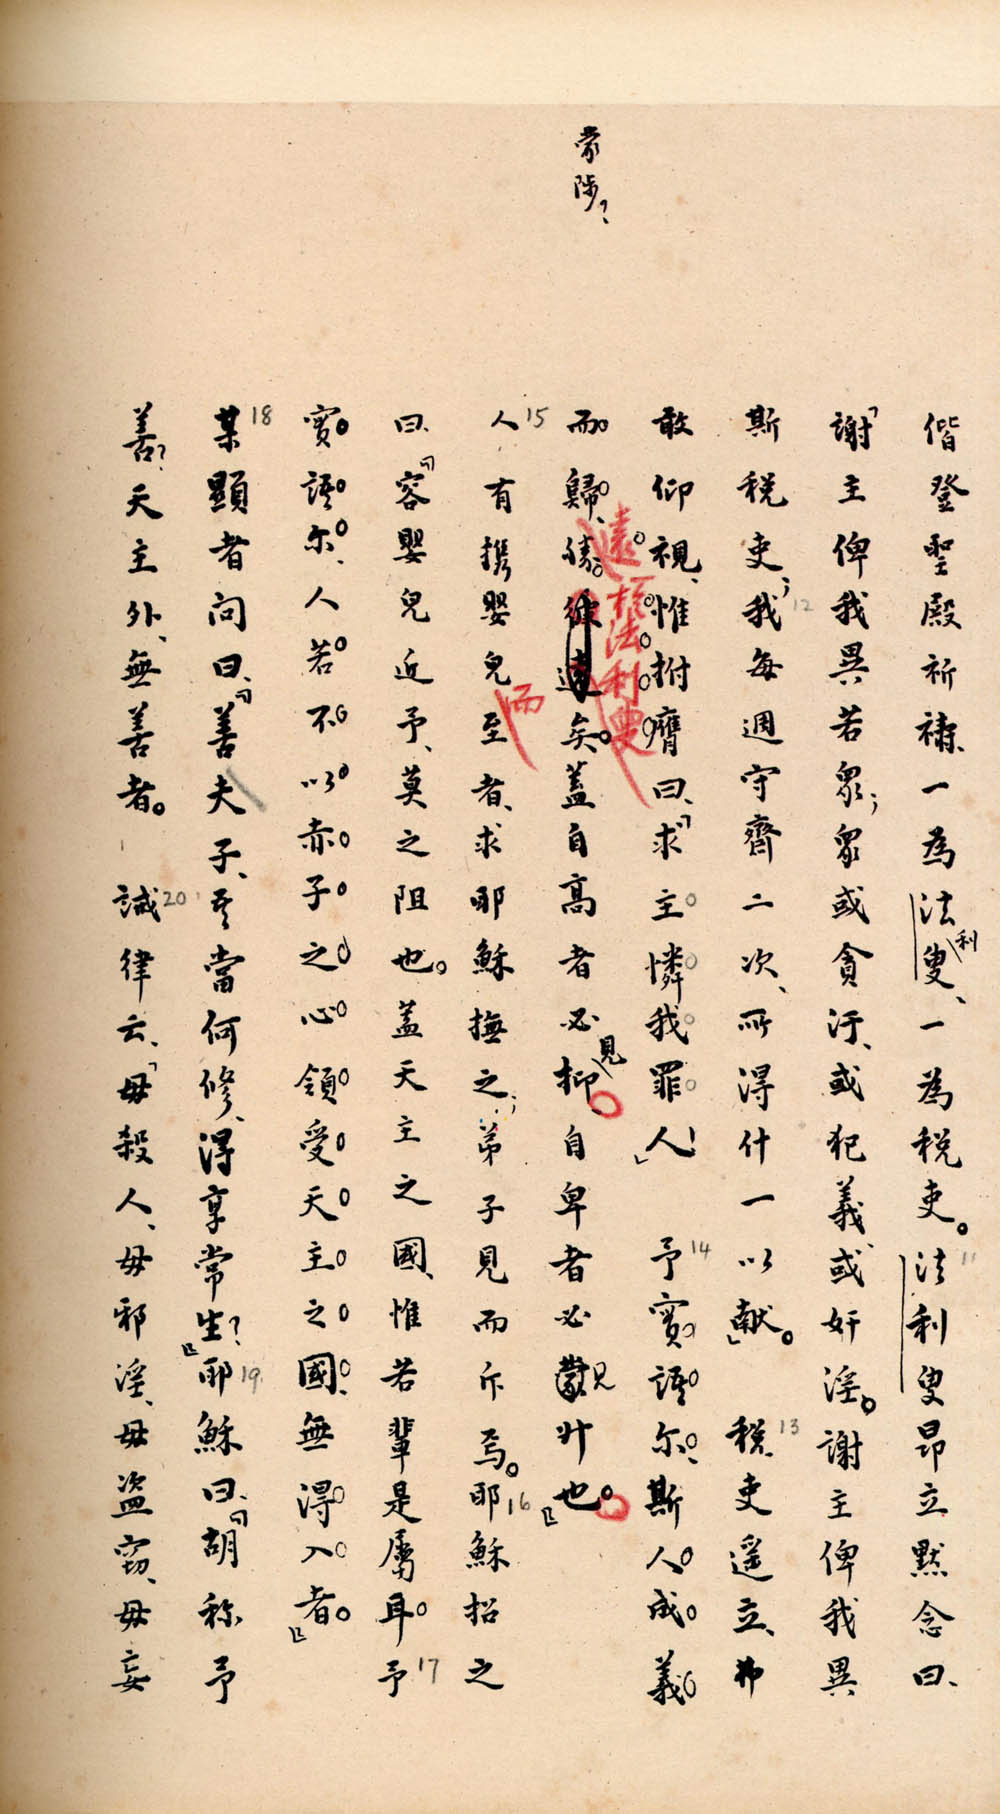 蒙陟?
偕登聖殿祈禱、一為法利叟、一為税吏。11法利叟昂立默念曰、
「謝主俾我異若眾;眾或貪汙、或犯義、或奸淫。謝主俾我異
斯税吏;12我每週守齋二次、所得什一以献。」13税吏遥立、弗
敢仰視、惟拊膺曰、「求主憐我罪人!」14予實語尔、斯人成義
而歸、勝遠於法利叟矣。蓋自高者必見抑、自卑者必見升也。』
15人有携嬰兒至而者、求耶穌撫之;弟子見而斥焉。16耶穌招之
曰、『容嬰兒近予、莫之阻也。蓋天主之國、惟若輩是屬耳。17予
實語尔、人若不以赤子之心領受天主之國、無得入者。』
18某顯者問曰、『善夫子、當何修、得享常生?』19耶穌曰、『胡称予
善?天主外、無善者。20誡律云、「毋殺人、毋邪淫、毋盗竊、毋妄